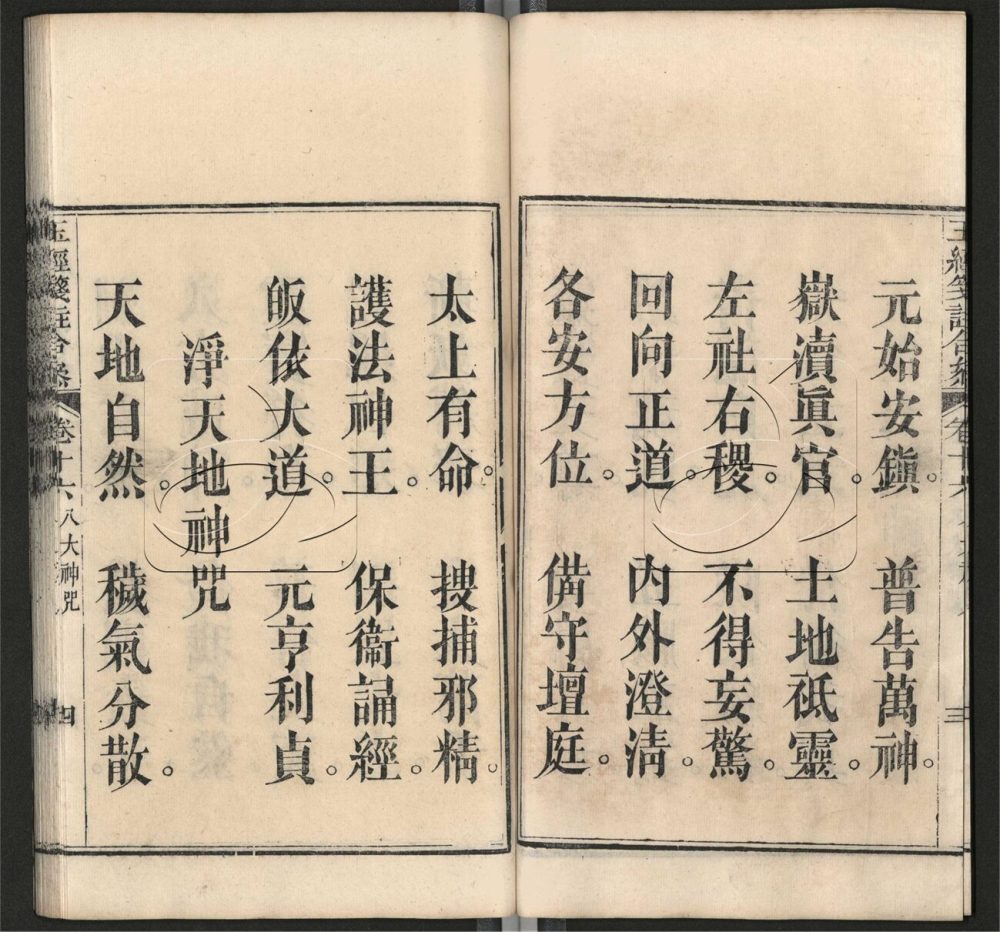 元始安鎮。普告萬神。
嶽瀆眞官。土地祇靈。
左社右稷。不得妄驚。
回向正道。內外澄清。
各安方位。備守壇庭。
太上有命。搜捕邪精。
護法神王。保衞誦經。
皈依大道。元亨利貞。
淨天地神咒
天地自然。穢氣分散。
卷十六 八大神咒 四